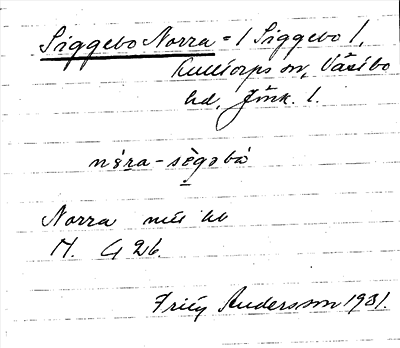 Siggebo Norra = / Siggebo 1,
Kulltorps sn, Västbo
hd, Jönk. l.
nèra - sègobà
Norra
M. G 26.
Andersson 1931.